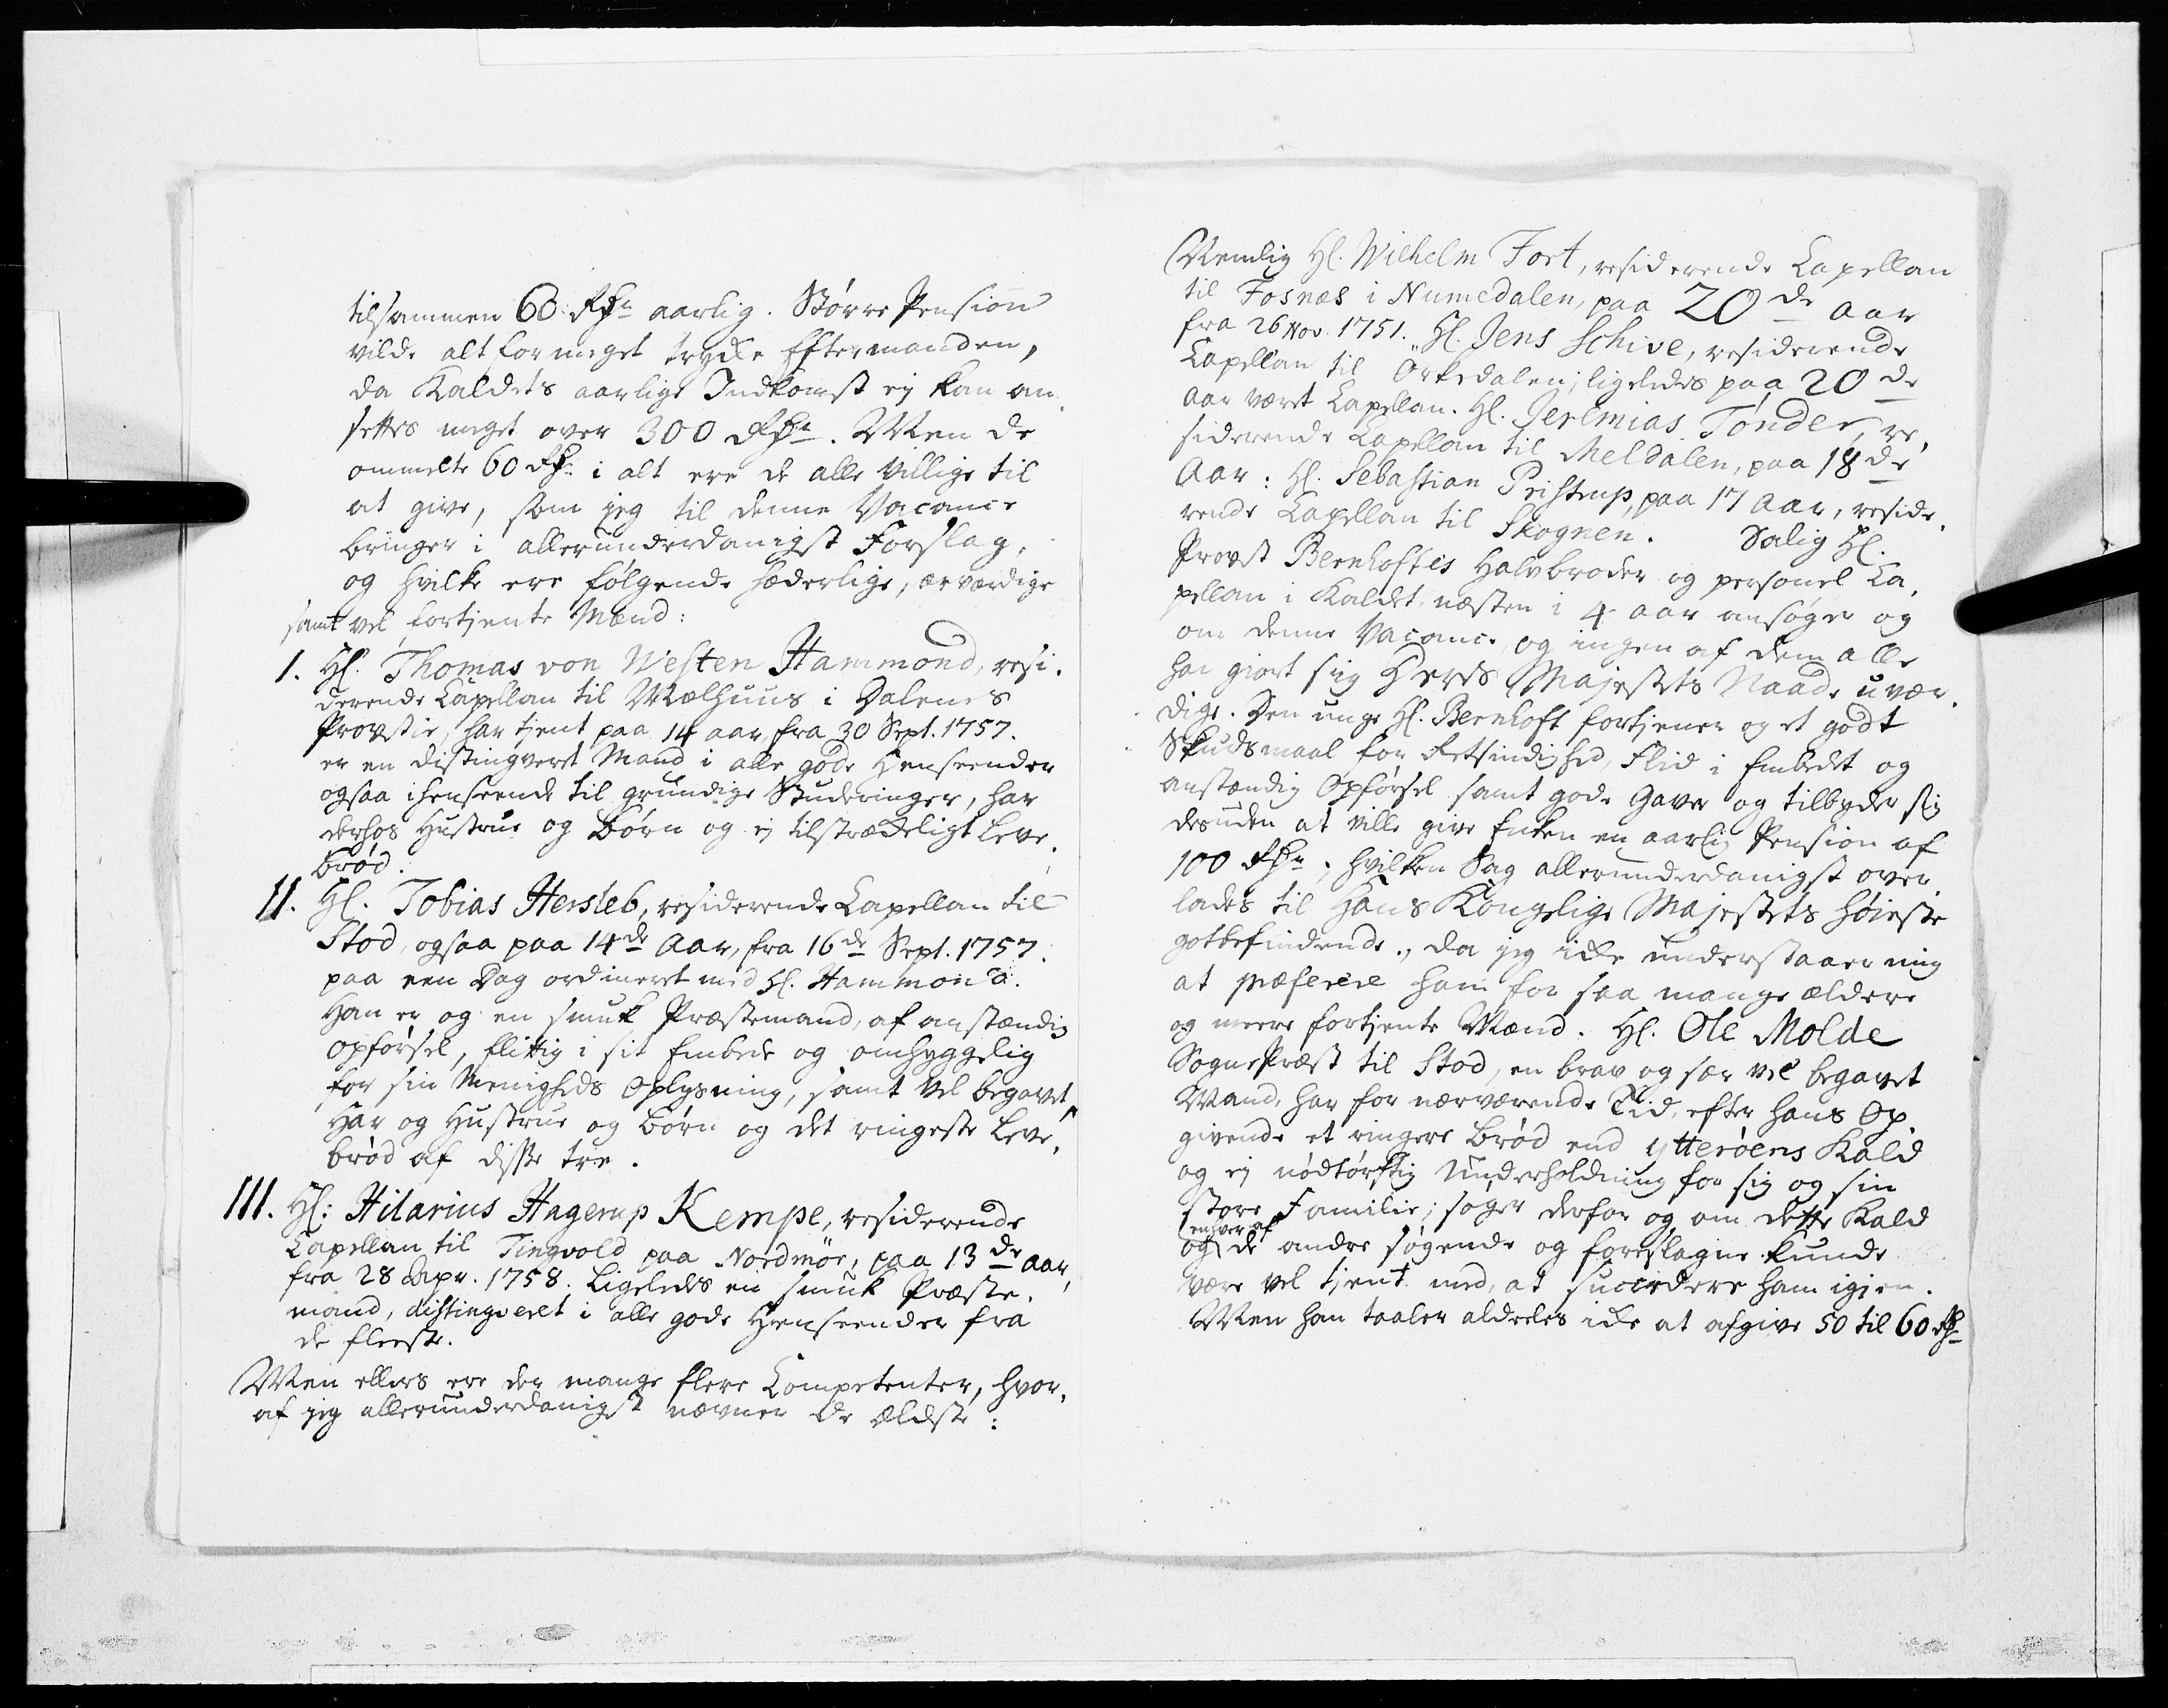 tilsammen 60 Rdr aarlig. Større Pension
vilde alt for meget trykke Eftermanden,
da Kaldets aarlige Indkomst ej kan an-
settes meget over 300 Rdr. Men de
ommelte 60 Rdr i alt ere de alle villige til
at give, som jeg til denne Vacance
bringer i allerunderdanigst Forslag,
og hvilke ere følgende hæderlige, ærværdige
samt vel fortjente Mænd:
I. Hl. Thomas von Westen Hammond, resi-
derende Capellan til Mælhuus i Dalenes
Provstie, har tjent paa 14 aar, fra 30 Sept. 1757.
er en distingveret Mand i alle gode Henseender
ogsaa i henseende til grundige Studeringer, har
derhos Hustrue og Børn og ej tilstrækkeligt Leve-
brød.
II. Hl. Tobias Hersleb, residerende Capellan til
Stod, ogsaa paa 14de Aar, fra 16de Sept. 1757.
paa een Dag ordineret med Hl. Hammond.
Han er og en smuk Præstemand, af anstændig
Opførsel, flittig i sit Embede og omhyggelig
for sin Menigheds Oplysning, samt vel begavet,
Har og Hustrue og Børn og det ringeste Leve-
brød af disse tre.
III. Hl: Hilarius Hagerup Kempe, residerende
Capellan til Tingvold paa Nordmör, paa 13de Aar,
fra 28 Apr. 1758. Ligeledes en smuk Præste-
mand, distingveret i alle gode Henseender fra
de fleeste.
Men ellers ere der mange flere Competenter, hvor-
af jeg allerunderdanigst nævner de ældste:
Nemlig Hl. Wilhelm Tort, residerende Capellan
til Fosnæs i Numedalen, paa 20de Aar
fra 26 Nov. 1751. Hl. Jens Schive, residerende
Capellan til Örkedalen; ligeledes paa 20de
Aar været Capellan. Hl. Jeremias Tønder, re-
siderende Capellan til Meldalen, paa 18de
Aar: Hl. Sebastian Peistrup, paa 17 Aar, reside-
rende Capellan til Skognen. Salig Hl.
Provst Bernhoftes Halvbroder og personel Ca-
pellan i Kaldet næsten i 4 aar ansøger og
om denne Vacance, og ingen af dem alle
har giort sig Deres Majestets Naade uvær-
dige. Den unge Hl. Bernhoft fortjener og et godt
Skudsmaal for Retsindighed, Flid i Embedet og
anstændig Opførsel samt gode Gaver og tilbyder sig
desuden at ville give Enken en aarlig Pension af
100 Rdr; hvilken Sag allerunderdanigst over-
lades til Hans Kongelige Majestets høieste
gotbefindende, da jeg ikke understaaer mig
at præferere ham for saa mange ældere
og meere fortjente Mænd. Hl. Ole Molde
Sogne Præst til Stod, en brav og sær vel begavet
Mand, har for nærværende Tid, efter hans Op-
givende et ringere Brød end Ytterøens Kald
og ej nødtørftig Underholdning for sig og sin
store Familie; søger derfor og om dette Kald
og enhver af de andre søgende og foreslagne kunde
være vel tjent med, at succedere ham igjen.
Men han taaler aldeeles ikke at afgive 50 til 60 Rdr